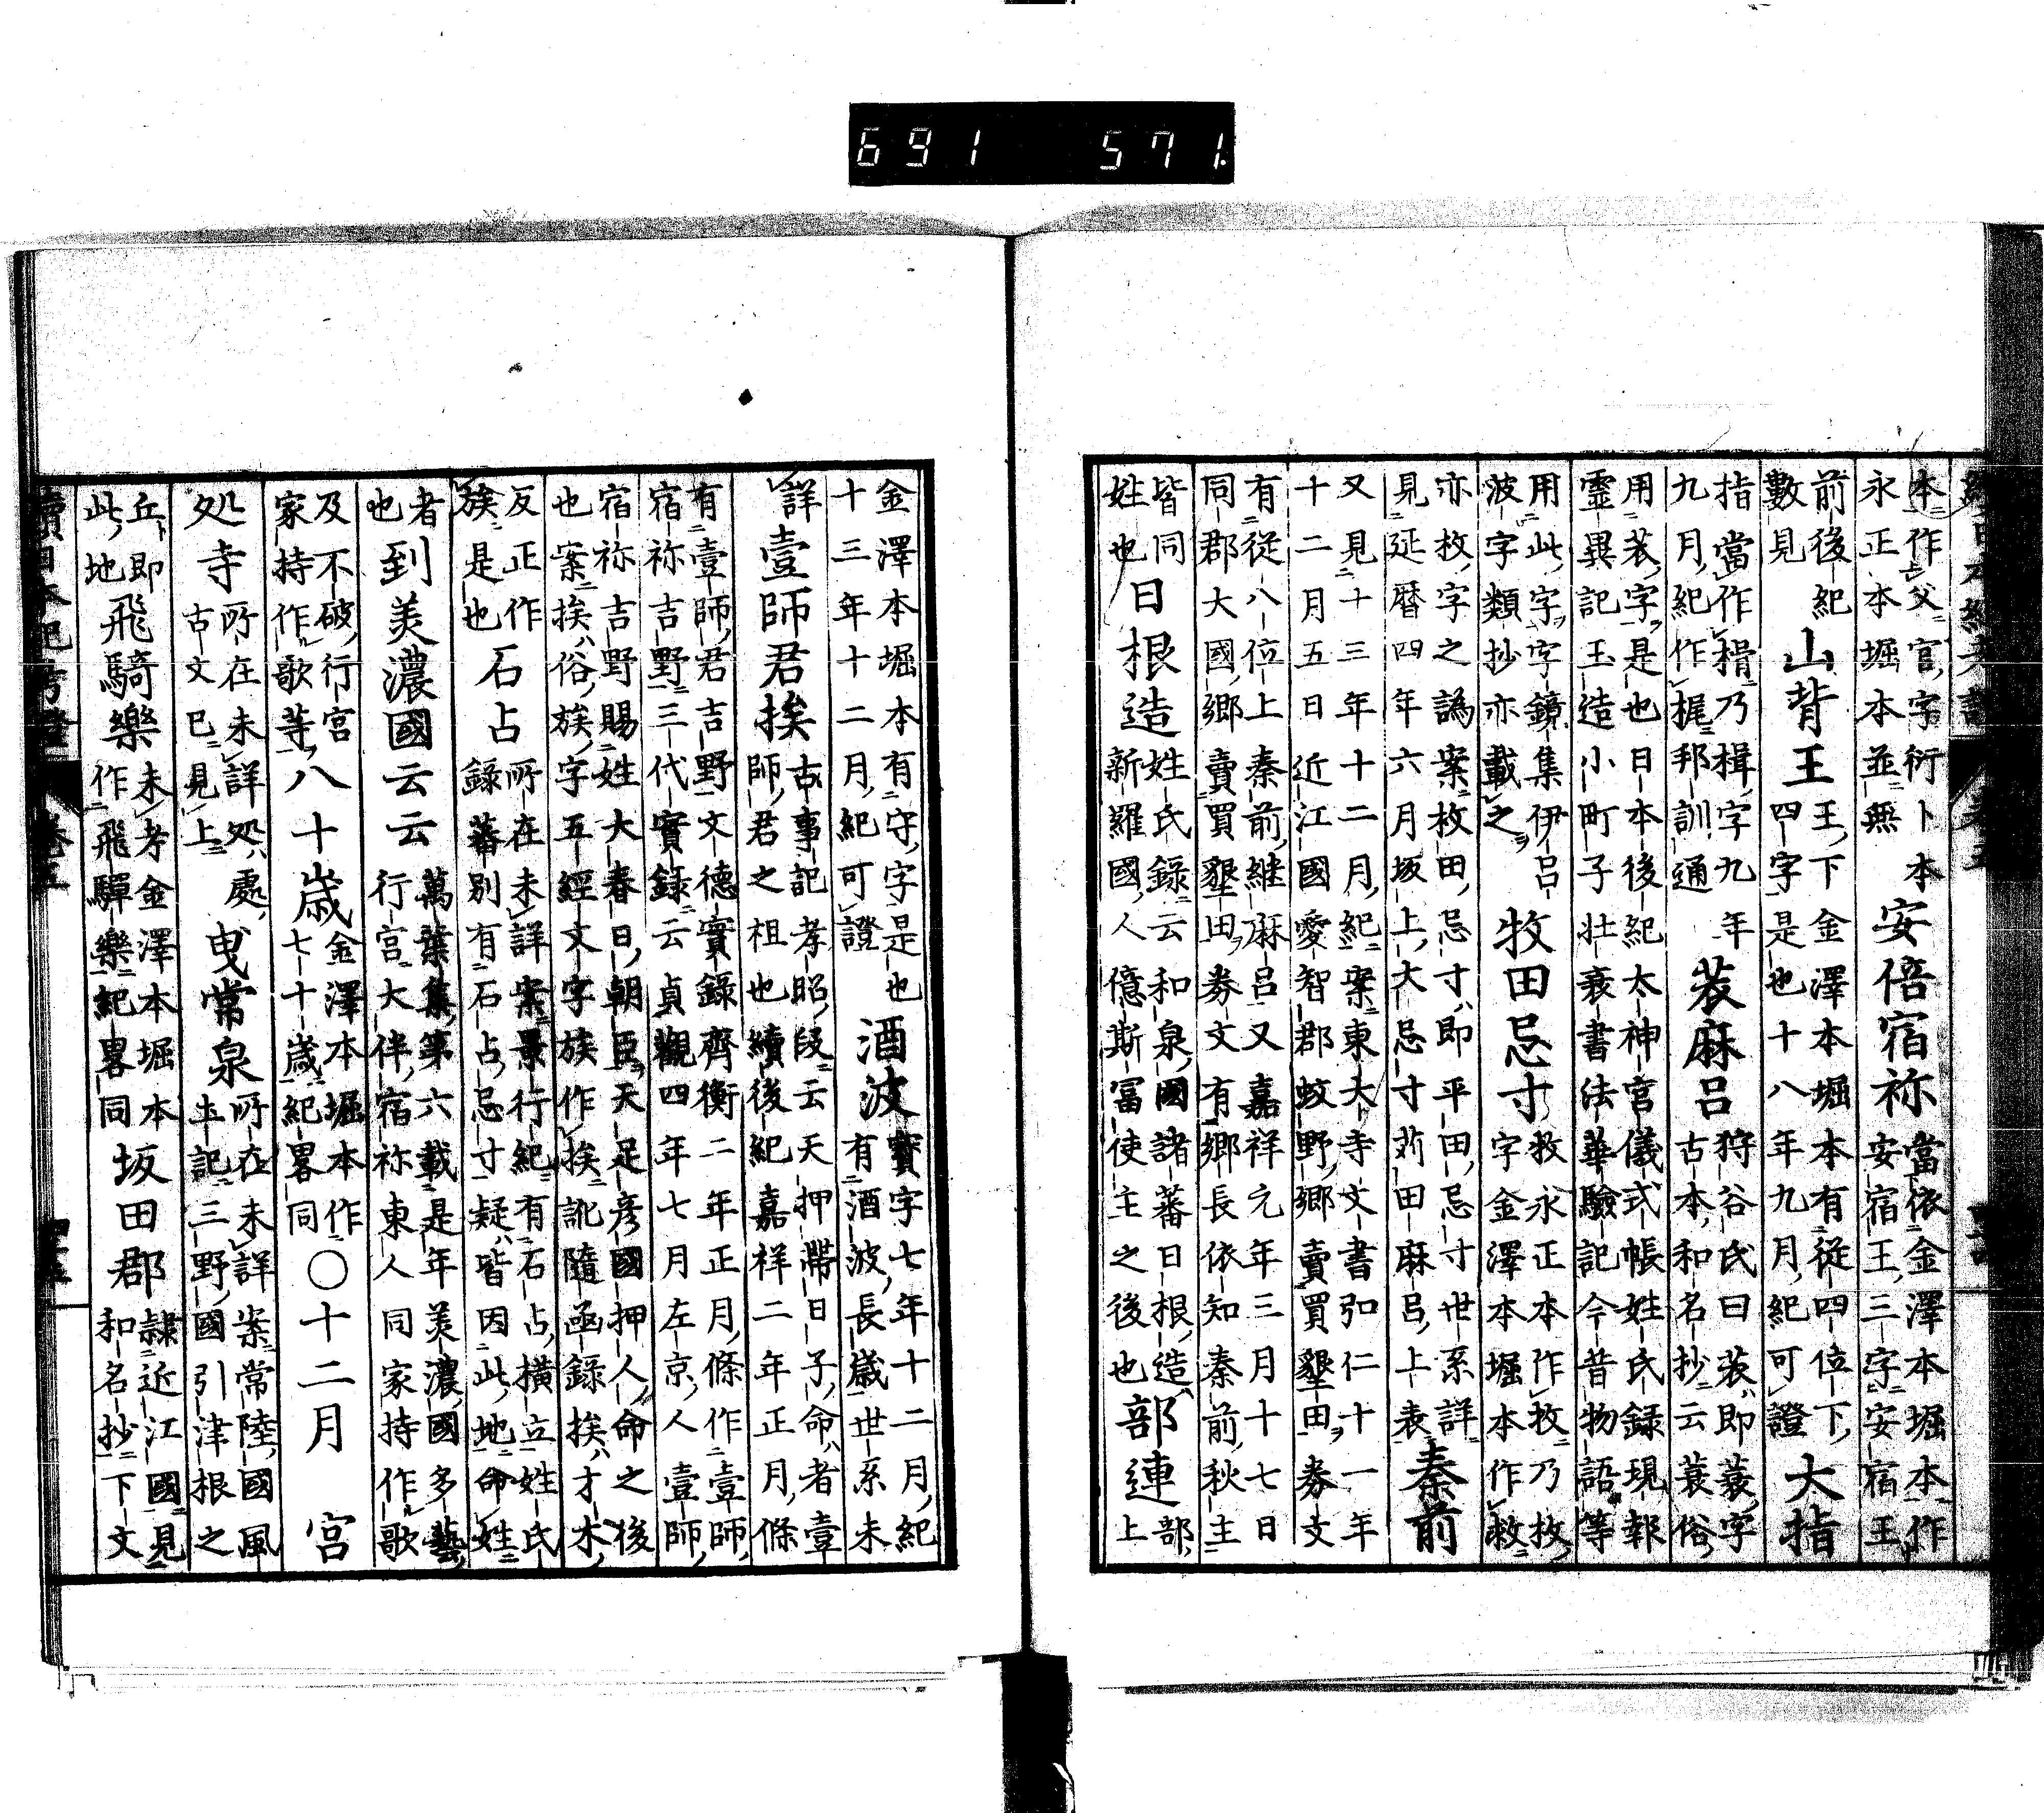 691 571.
本作父官字衍卜本
永正本堀本並無
安倍宿祢
當依金澤本堀本作
安宿王三字安宿王
前後紀
數見
山背王
王下金澤本堀本有從四位下
四字是也十八年九月紀可證
大指
指當作楫乃楫字九年
九月紀作梶邦訓通
蓑麻呂
狩谷氏曰蓑即蓑字
古本和名抄云蓑俗
用蓑字是也日本後紀太神宮儀式帳姓氏録現報
靈異記玉造小町子壮衰書法華驗記今昔物語等
用此字字鏡集伊呂
波字類抄亦載之
牧田忌寸
牧永正本作牧乃枚
字金澤本堀本作枚
亦枚字之譌案枚田忌寸即平田忌寸世系詳
見延暦四年六月坂上大忌寸苅田麻呂上表
秦前
又見十三年十二月紀案東大寺文書弘仁十一年
十二月五日近江國愛智郡蚊野郷賣買墾田券文
有從八位上秦前継麻呂又嘉祥元年三月十七日
同郡大國郷賣買墾田券文有郷長依知秦前秋主
皆同
姓也
日根造
姓氏錄云和泉國諸蕃日根造
新羅國人億斯富使主之後也
部連
部
上
金澤本堀本有守字是也
十三年十二月紀可證
酒波
寳字七年十二月紀
有酒波長歳世系未
詳
壹師君挨
古事記孝昭段云天押帶日子命者壹
師君之祖也續後紀嘉祥二年正月條
有壹師君吉野文德實錄齊衡二年正月條作壹師
宿祢吉野三代實錄云貞觀四年七月左京人壹師
宿祢吉野賜姓大春日朝臣天足彦國押人命之後
也案挨俗族字五經文字族作挨訛隨函録挨才木
反正作
族是也
石占
所在未詳案景行紀有石占横立姓氏
録蕃別有石占忌寸疑皆因此地命姓
者
也
到美濃國云云
萬葉集第六載是年美濃國多藝
行宮大伴宿祢東人同家持作歌
及不破行宮
家持作歌等
八十歳
金澤本堀本作
七十歳紀畧同
〇十二月　宮
処寺
所在未詳処處
古文已見上
曵常泉
所在未詳案常陸國風
土記三野國引津根之
丘即
此地
飛騎樂
未考金澤本堀本
作飛驒樂紀畧同
坂田郡
隷近江國見
和名抄下文
續日本紀考證
卷五